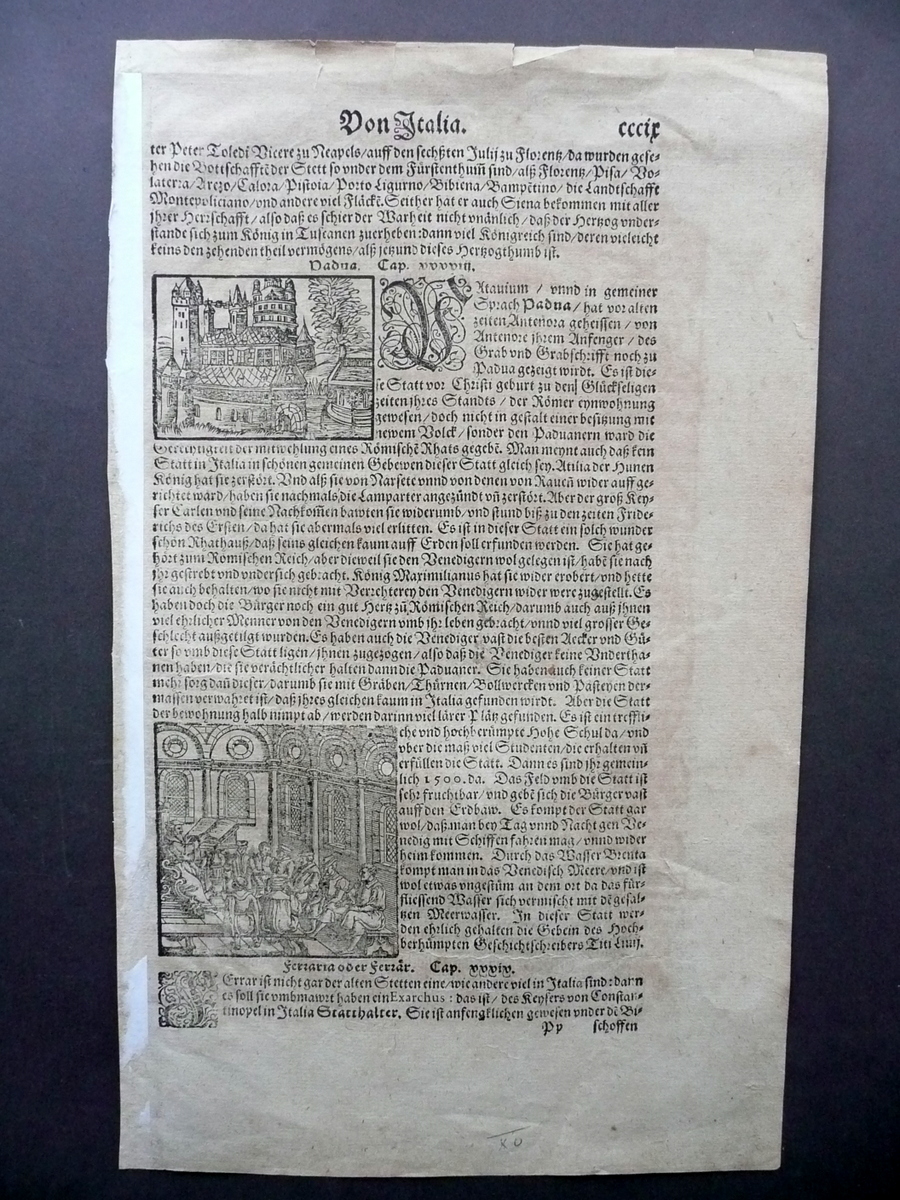 Von Italia. cccix
ter Peter Toledi Vicere zu Neapels/auff den sechßten Julij zu Florentz/da wurden gese-
hen die Bottschafftē der Stett so vnder dem Fürstenthum̄ sind/alß Florentz/Pisa/Vo-
laterra/Arezo/Calora/Pistoia/Porto Ligurno/Bibiena/Bampētino/die Landtschafft
Montepoliciano/vnd andere viel Fläckē. Seither hat er auch Siena bekommen mit aller
jhrer Herrschafft/also daß es schier der Warheit nicht vnänlich/daß der Hertzog vnder-
stande sich zum König in Tuscanen zuerheben: dann viel Königreich sind/deren vieleicht
keins den zehenden theil vermögens/alß jetzund dieses Hertzogthumb ist.
Padua. Cap. xxxviij.
PAtauium / vnnd in gemeiner
Sprach Padua/hat vor alten
zeiten Antenora geheissen / von
Antenore jhrem Anfenger / des
Grab vnd Grabschrifft noch zu
Padua gezeigt wirdt. Es ist die-
se Statt vor Christi geburt zu den Glückseligen
zeiten jhres Standts / der Römer eynwohnung
gewesen/doch nicht in gestalt einer besitzung mit
newem Volck/sonder den Paduanern ward die
Gerechtigkeit der mitwehlung eines Römischē Rhats gegebē. Man meynt auch daß kein
Statt in Italia in schönen gemeinen Gebewen dieser Statt gleich sey. Atilia der Hunen
König hat sie zerstört. Vnd alß sie von Narsete vnnd von denen von Rauen̄ wider auff ge-
richtet ward/haben sie nachmals die Lamparter angezündt vn̄ zerstört. Aber der groß Key-
ser Carlen vnd seine Nachkom̄en bawten sie widerumb/vnd stund biß zu den zeiten Fride-
richs des Ersten/da hat sie abermals viel erlitten. Es ist in dieser Statt ein solch wunder
schön Rhathauß/daß seins gleichen kaum auff Erden soll erfunden werden. Sie hat ge-
hört zum Römischen Reich/aber dieweil sie den Venedigern wol gelegen ist/habē sie nach
jhr gestrebt vnd vndersich gebracht. König Maximilianus hat sie wider erobert/vnd hette
sie auch behalten/wo sie nicht mit Verrehterey den Venedigern wider were zugestellt. Es
haben doch die Bürger noch ein gut Hertz zū Römischen Reich/darumb auch auß jhnen
viel ehrlicher Menner von den Venedigern vmb jhr leben gebracht/vnnd viel grosser Ge-
schlecht außgetilgt wurden. Es haben auch die Venediger vast die besten Aecker vnd Gü-
ter so vmb diese Statt ligen/jhnen zugezogen/also daß die Venediger keine Vndertha-
nen haben/die sie verächtlicher halten dann die Paduaner. Sie haben auch keiner Statt
mehr sorg dan̄ dieser/darumb sie mit Gräben/Thürnen/Bollwercken vnd Pasteyen der-
massen verwahret ist/daß jhres gleichen kaum in Italia gefunden wirdt. Aber die Statt
der bewohnung halb nimpt ab/werden darinn viel lärer Plätz gefunden. Es ist ein treffli-
che vnd hochberümpte Hohe Schul da/vnd
vber die maß viel Studenten/die erhalten vn̄
erfüllen die Statt. Dann es sind jhr gemein-
lich 1500. da. Das Feld vmb die Statt ist
sehr fruchtbar/vnd gebē sich die Bürger vast
auff den Erdbaw. Es kompt der Statt gar
wol/daß man bey Tag vnnd Nacht gen Ve-
nedig mit Schiffen fahren mag/vnnd wider
heim kommen. Durch das Wasser Brenta
kompt man in das Venedisch Meere/vnd ist
wol etwas vngestüm an dem ort da das für-
fliessend Wasser sich vermischt mit dē gesal-
tzen Meerwasser. In dieser Statt wer-
den ehrlich gehalten die Gebein des Hoch-
berhümpten Geschichtschreibers Titi Liuij.
Ferraria oder Ferrär. Cap. xxxix.
FErrar ist nicht gar der alten Stetten eine/wie andere viel in Italia sind: dann
es soll sie vmbmawrt haben ein Exarchus: das ist/des Keysers von Constan-
tinopel in Italia Statthalter. Sie ist anfengklichen gewesen vnder dē Bi-
Pp schoffen